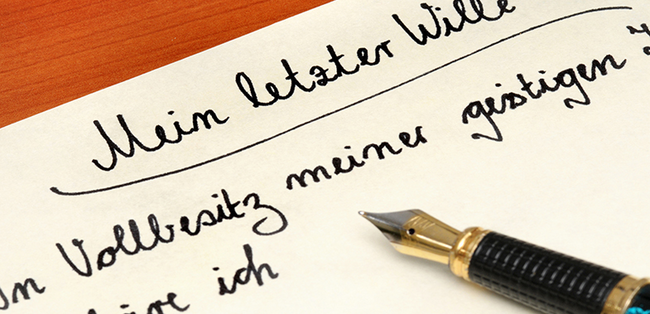 Mein letzter Wille
Im Vollbesitz meiner geistigen
ich